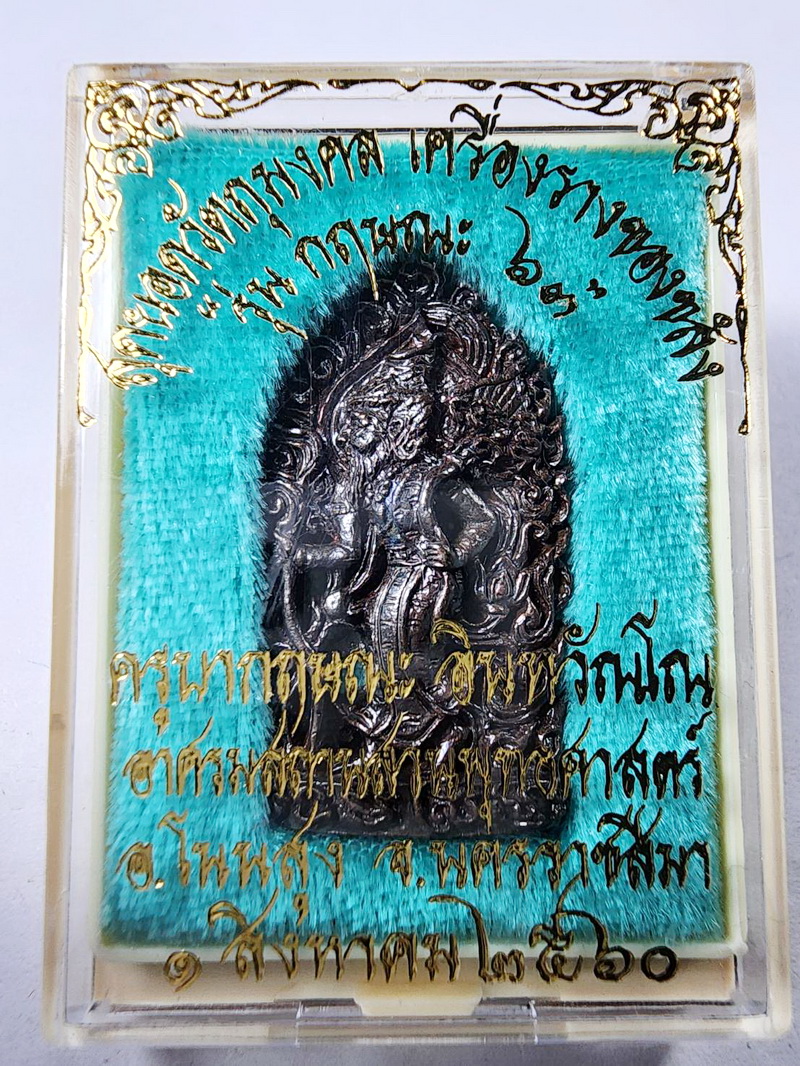 สุดยอดวัตถุมงคล เครื่องรางของขลัง
รุ่น กฤษณะ ๖๓
ครูบากฤษณะ อินทวัณโณ
อาศรมสถานสวนพุทธศาสตร์
อ.โนนสูง จ.นครราชสีมา
๑ สิงหาคม ๒๕๖๐